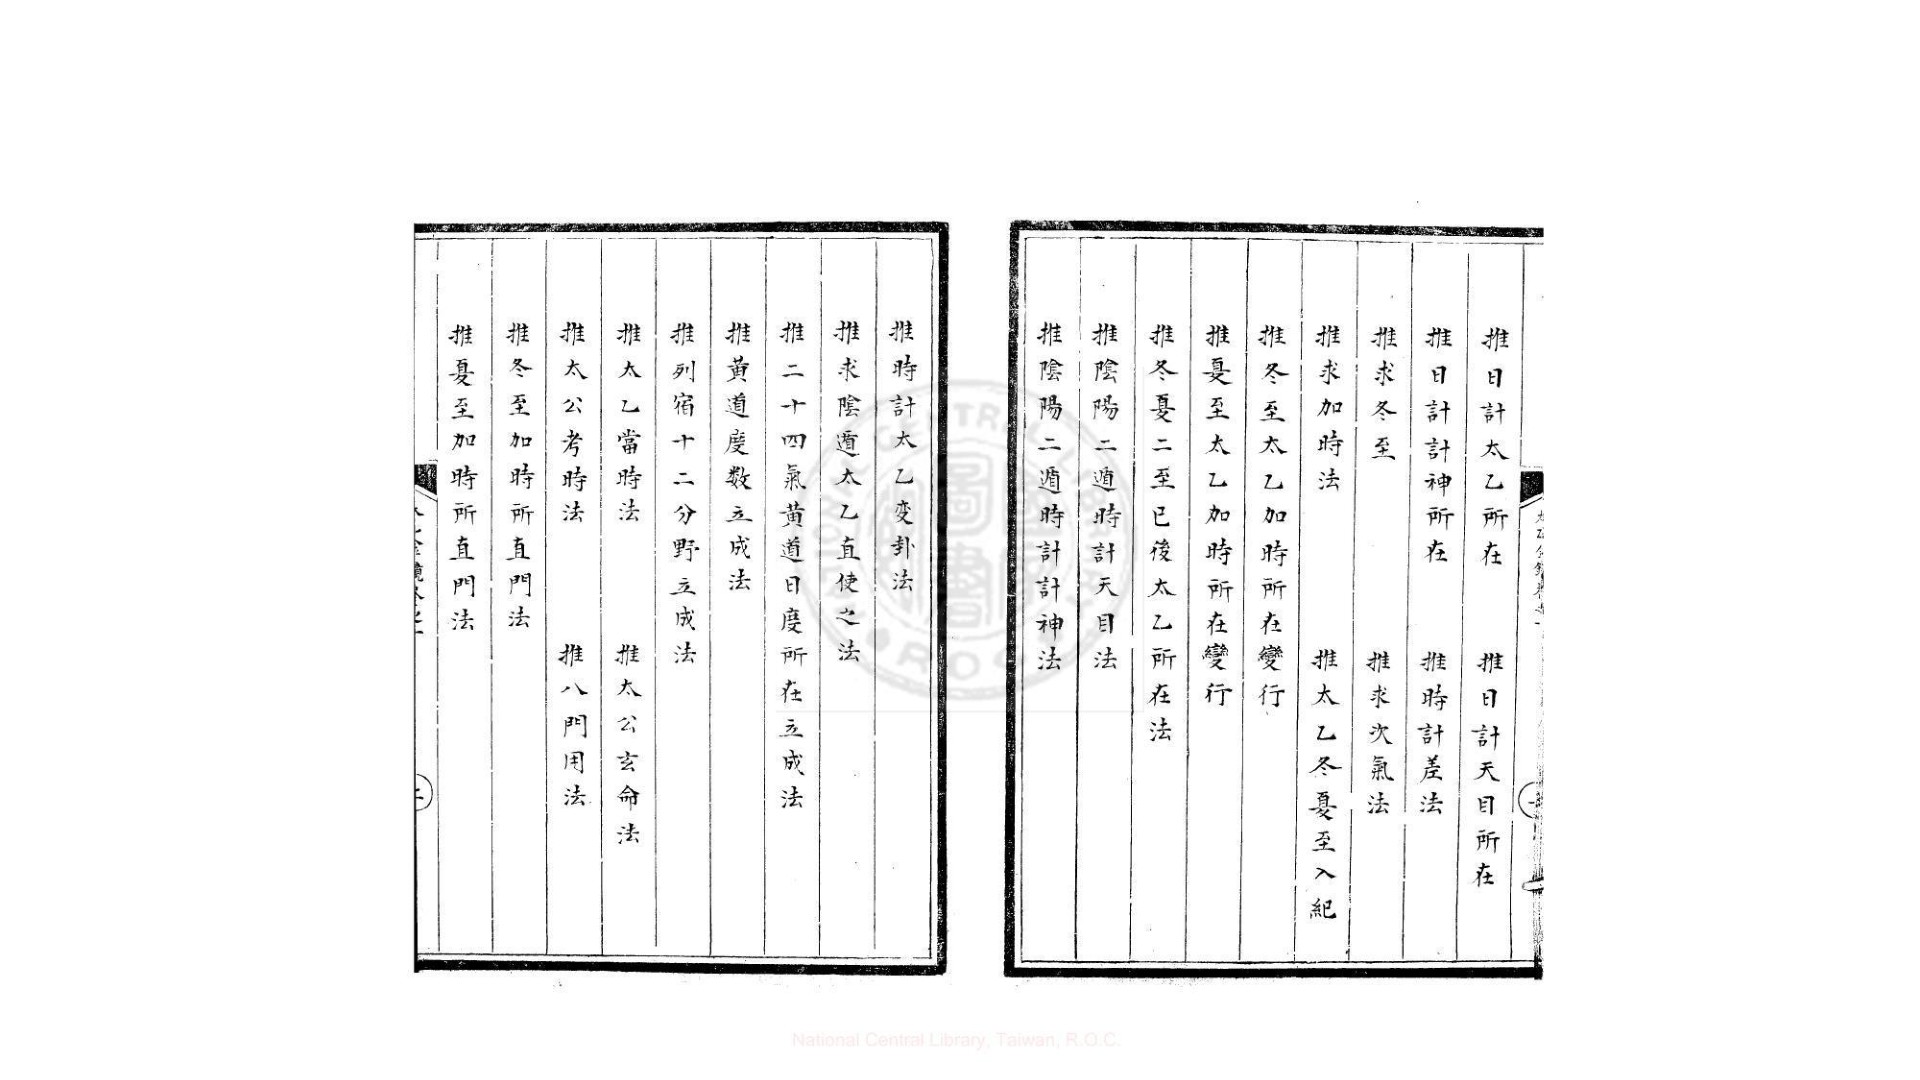 推日計太乙所在　推日計天目所在
推日計計神所在　推時計差法
推求冬至　推求次氣法
推求加時法　推太乙冬夏至入紀
推冬至太乙加時所在變行
推夏至太乙加時所在變行
推冬夏二至已後太乙所在法
推陰陽二遁時計天目法
推陰陽二遁時計計神法
推時計太乙变卦法
推求陰遁太乙直使之法
推二十四氣黄道日度所在立成法
推黄道度数立成法
推列宿十二分野立成法
推太乙當時法　推太公玄命法
推太公考時法　推八門用法
推冬至加時所直門法
推夏至加時所直門法
圖書
NATIONAL CENTRAL LIBRARY
R.O.C.
National Central Library, Taiwan, R.O.C.